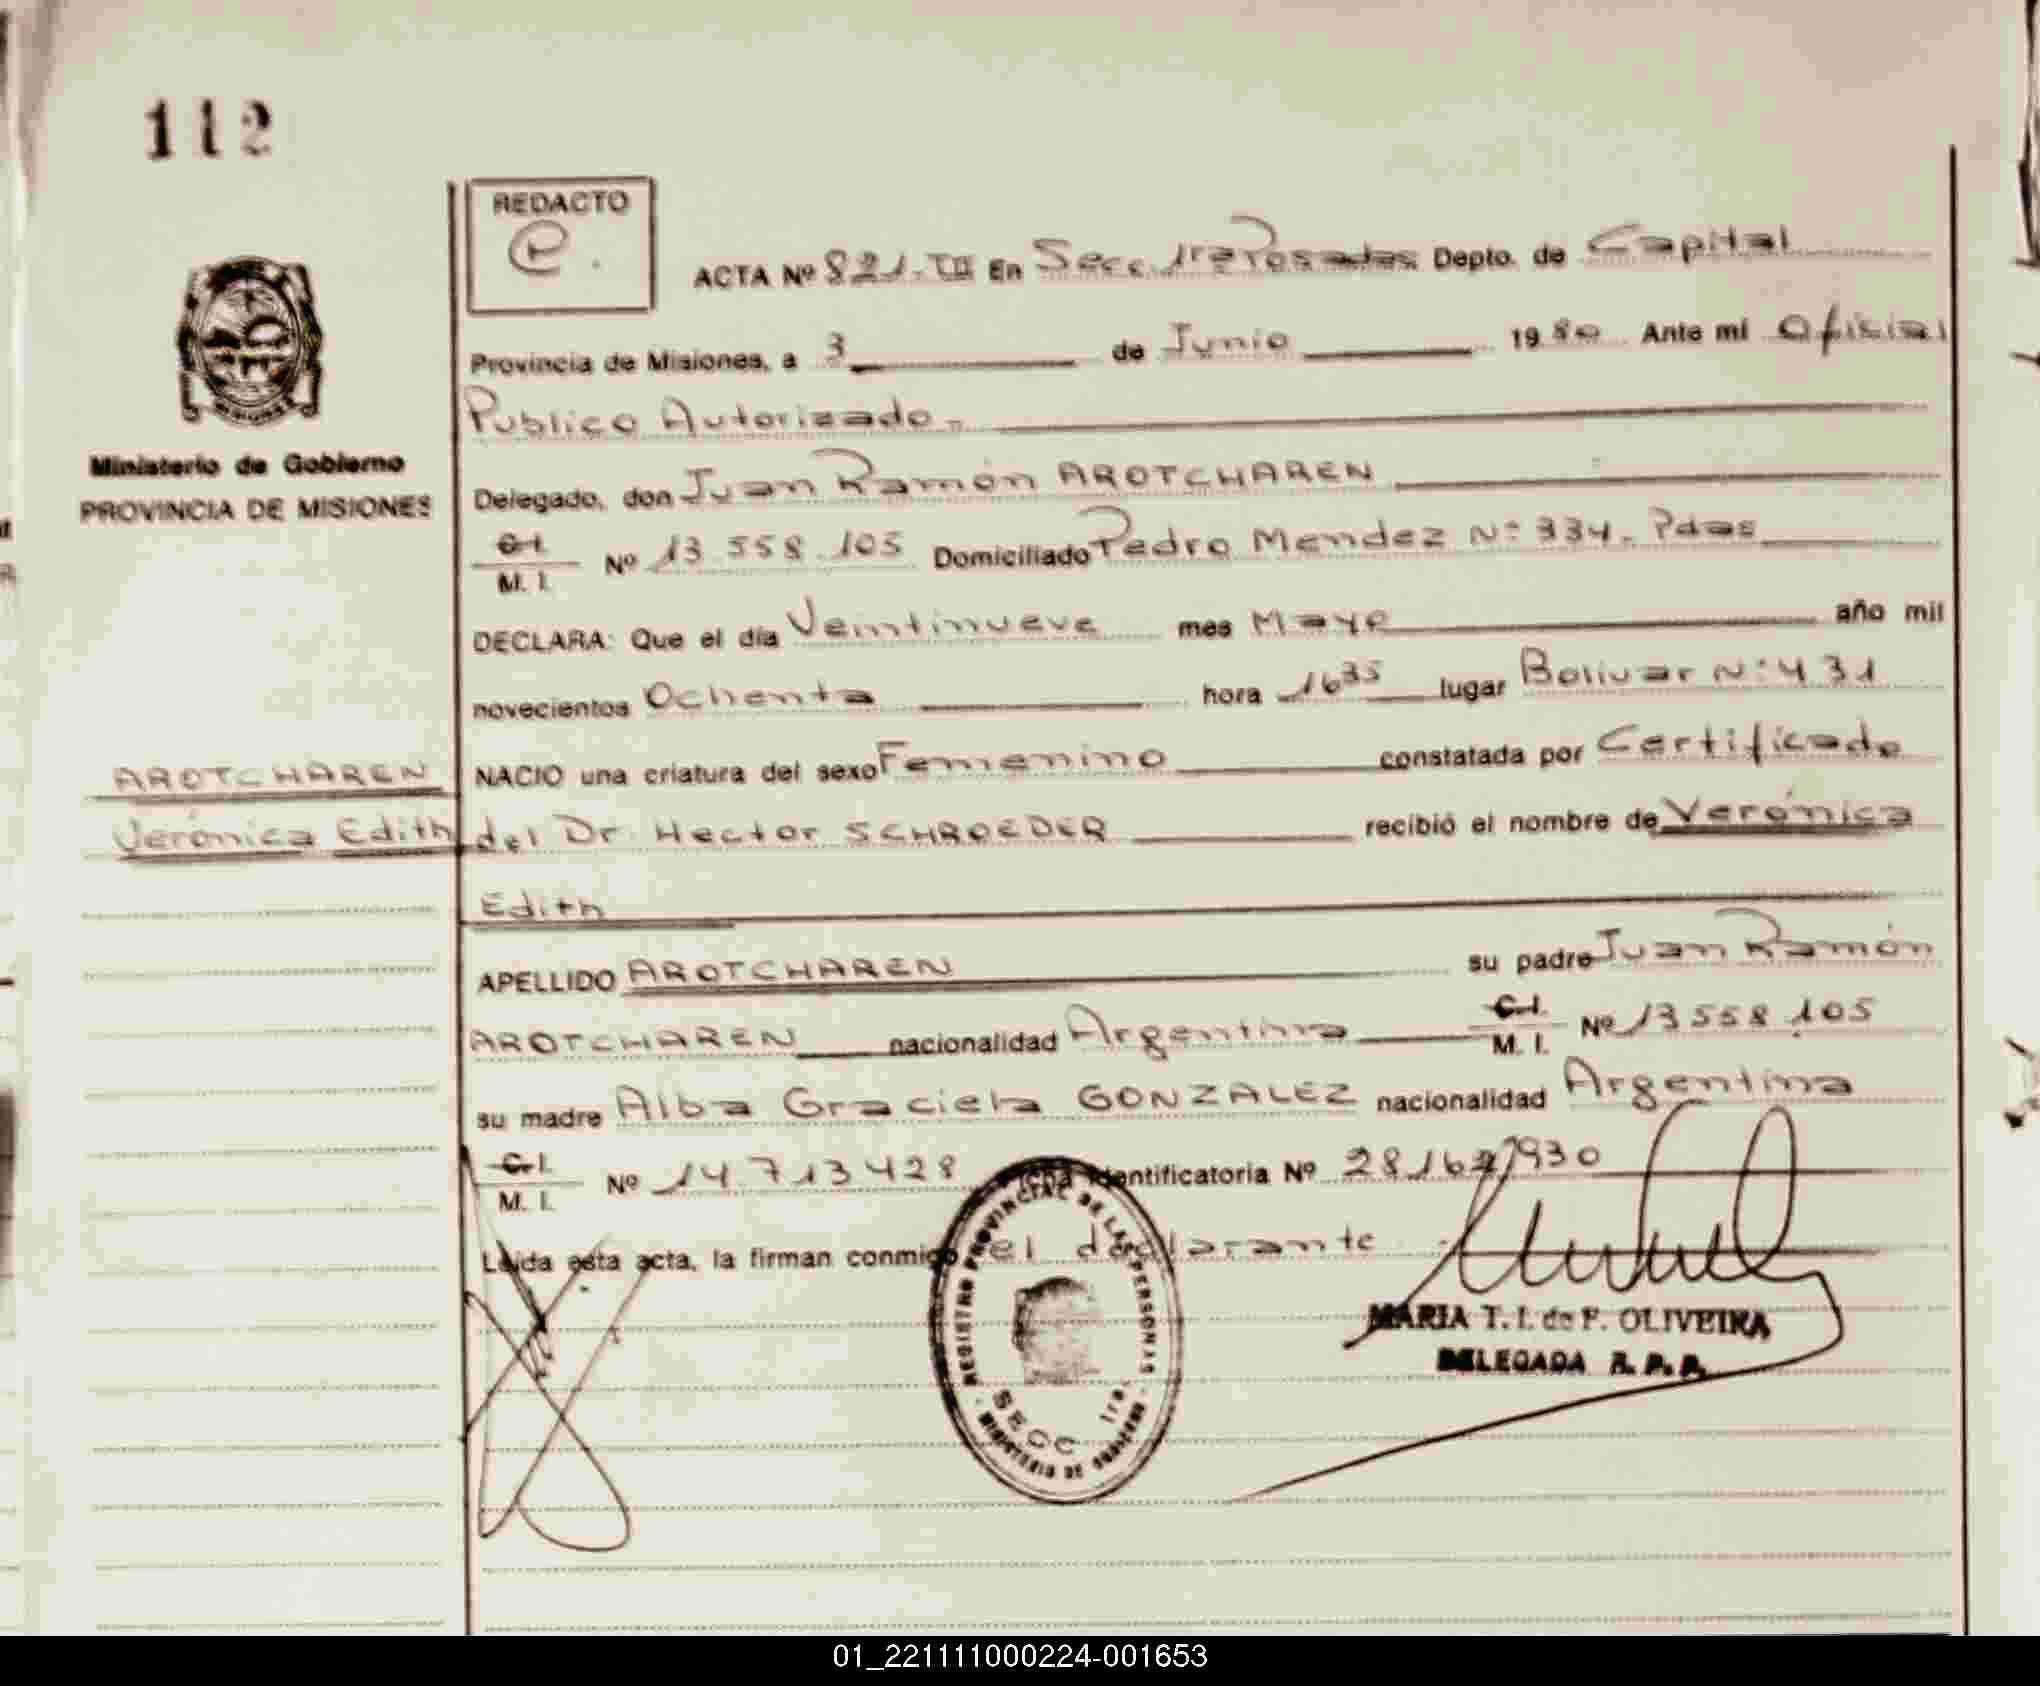 112
REDACTO
ACTA Nº 821. TII En Secc. 1ra Posadas Depto. de Capital
Provincia de Misiones, a 3 de Junio 1980 Ante mí Oficial
Publico Autorizado.-
Ministerio de Gobierno
PROVINCIA DE MISIONES
Delegado, don Juan Ramón AROTCHAREN
C.I.
M. I. Nº 13.558.105 Domiciliado Pedro Mendez Nº 334. Pdas
DECLARA: Que el día Veintinueve mes Mayo año mil
novecientos Ochenta hora 16 35 lugar Bolivar Nº 431
AROTCHAREN
NACIO una criatura del sexo Femenino constatada por Certificado
Verónica Edith
del Dr. Hector SCHROEDER recibió el nombre de Verónica
Edith
APELLIDO AROTCHAREN su padre Juan Ramón
AROTCHAREN nacionalidad Argentina C.I.
M. I. Nº 13.558.105
su madre Alba Graciela GONZALEZ nacionalidad Argentina
C.I.
M. I. Nº 14.713.428 Ficha Identificatoria Nº
Leída esta acta, la firman conmigo el declarante
REGISTRO PROVINCIAL DE LAS PERSONAS
SECC 1ra.
MINISTERIO DE GOBIERNO
MARIA T. I. de F. OLIVEIRA
DELEGADA R. P. P.
01_221111000224-001653